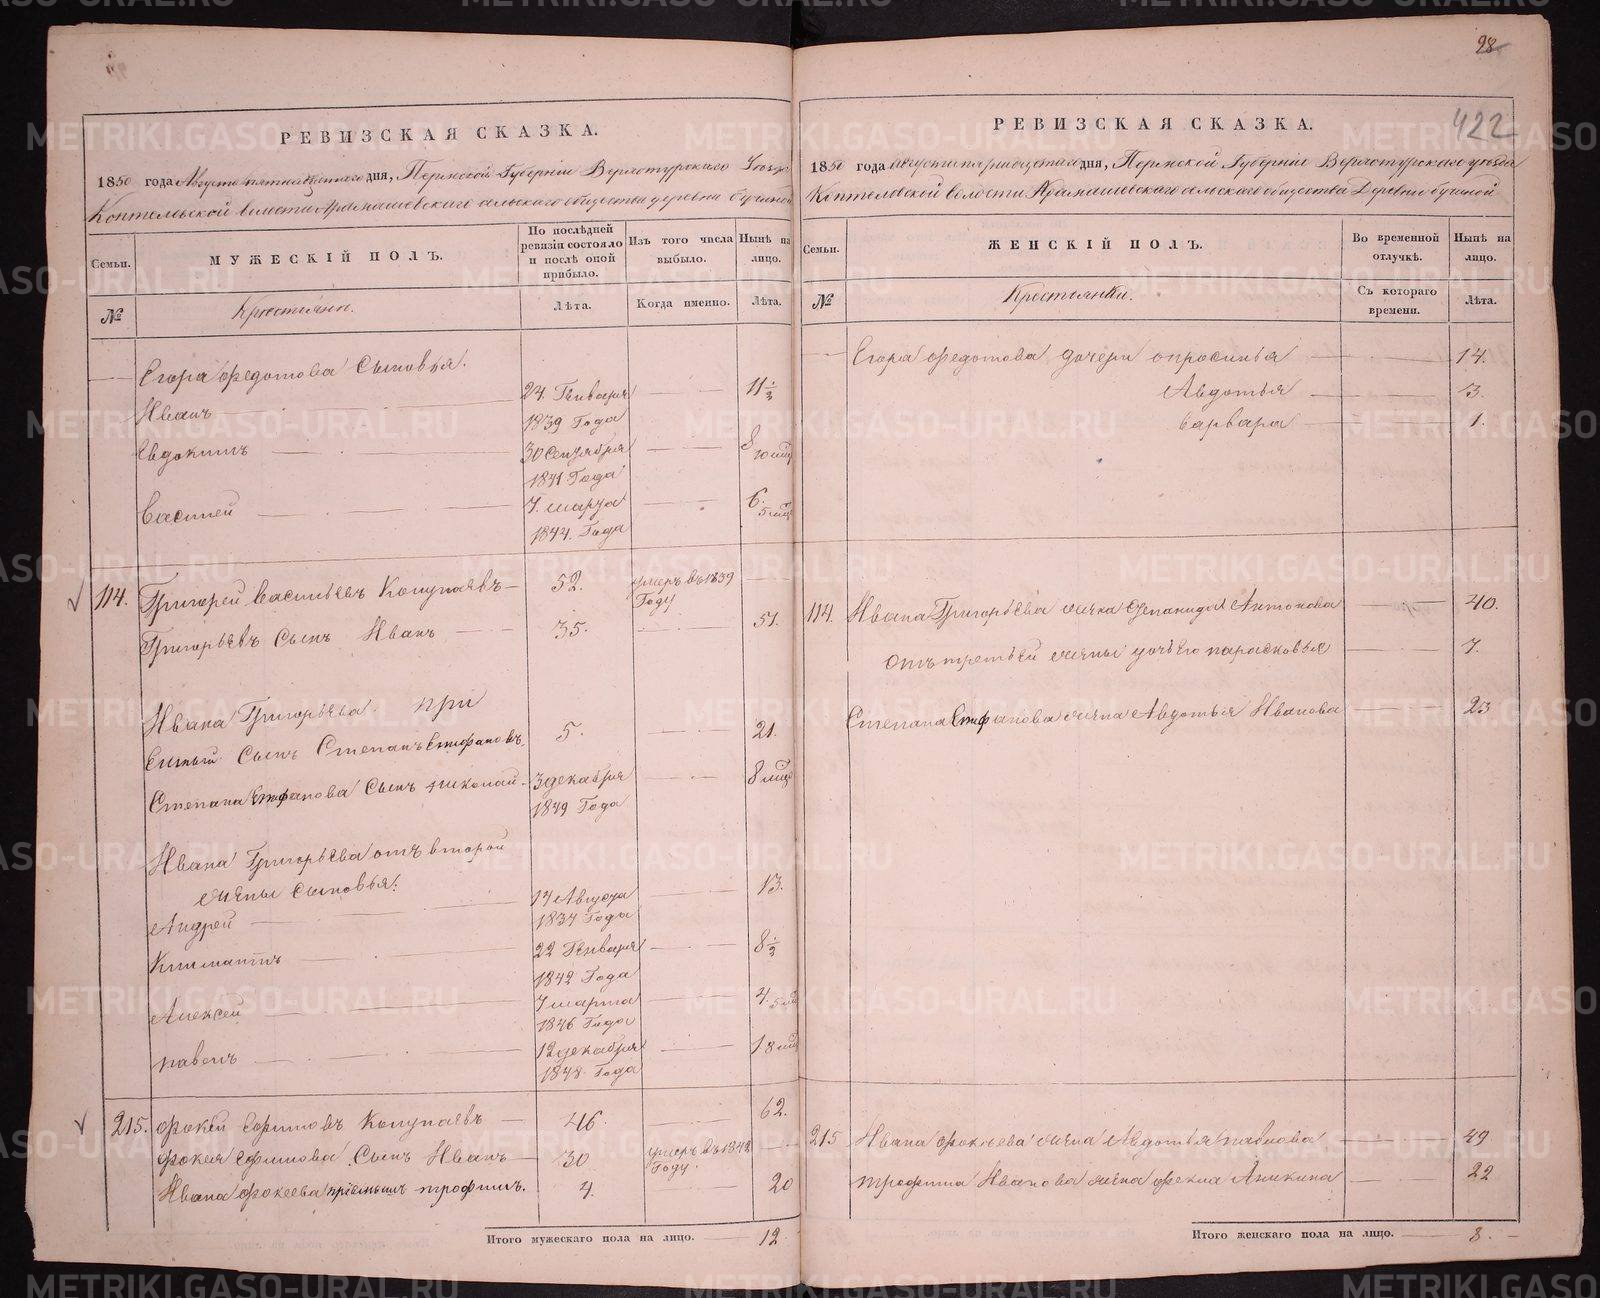 РЕВИЗСКАЯ СКАЗКА.
1850 года Августа пятнадцатого дня, Пермской Губернiи Верхотурскаго Уезда
Коптеловской волости Арамашевскаго сельскаго общества деревни Бучиной
Семьи. МУЖЕСКIЙ ПОЛЪ. По послѣдней ревизiи состояло и послѣ оной прибыло. Изъ того числа выбыло. Нынѣ на лицо.
№ Крестьяне. Лѣта. Когда именно. Лѣта.
Егора Федотова Сыновья.
Иванъ 24. Генваря 1839 Года 11 1/2
Евдокимъ 30 Сентября 1841 Года 8 10 мцъ
Василей 7. марта 1844. Года 6. 5 мцъ
114. Григорей Васильевъ Колупаевъ 52. умеръ въ 1839 Году
Григорьевъ Сынъ Иванъ 35. 51.
Ивана Григорьева при
емный Сынъ Степанъ Епифановъ 5. 21.
Степана Епифанова Сынъ Николай 3 декабря 1849 Года 8 мцъ
Ивана Григорьева отъ второй
жены сыновья:
Андрей 17 Августа 1837 Года 13.
Климантъ 22 Генваря 1842 Года 8 1/2
Алексей 7 марта 1846 Года 4. 5 мц
павелъ 12 декабря 1848. Года 1 8 мцъ
215. Фокей Ефимовъ Колупаевъ 46. 62.
Фокея Ефимова Сынъ Иванъ 30 умеръ въ 1842 Году.
Ивана Фокеева прiемышъ трофимъ. 4. 20
Итого мужескаго пола на лицо. 12
28
422
РЕВИЗСКАЯ СКАЗКА.
1850 года Августа пятнадцатого дня, Пермской Губернiи Верхотурскаго уезда
Коптеловской волости Арамашевскаго сельскаго общества Деревни бучиной
Семьи. ЖЕНСКIЙ ПОЛЪ. Во временной отлучкѣ. Нынѣ на лицо.
№ Крестьянки. Съ котораго времени. Лѣта.
Егора Федотова дочери опросинья 14.
Авдотья 3.
варвара 1.
114. Ивана Григорьева жена Степанида Антонова 40.
отъ третьей жены дочь его парасковья 7.
Степана Епифанова жена Авдотья Иванова 23
215 Ивана Фокеева жена Авдотья павлова 49
трофима Иванова жена Фекла Аникина 22
Итого женскаго пола на лицо. 8.
METRIKI.GASO-URAL.RU